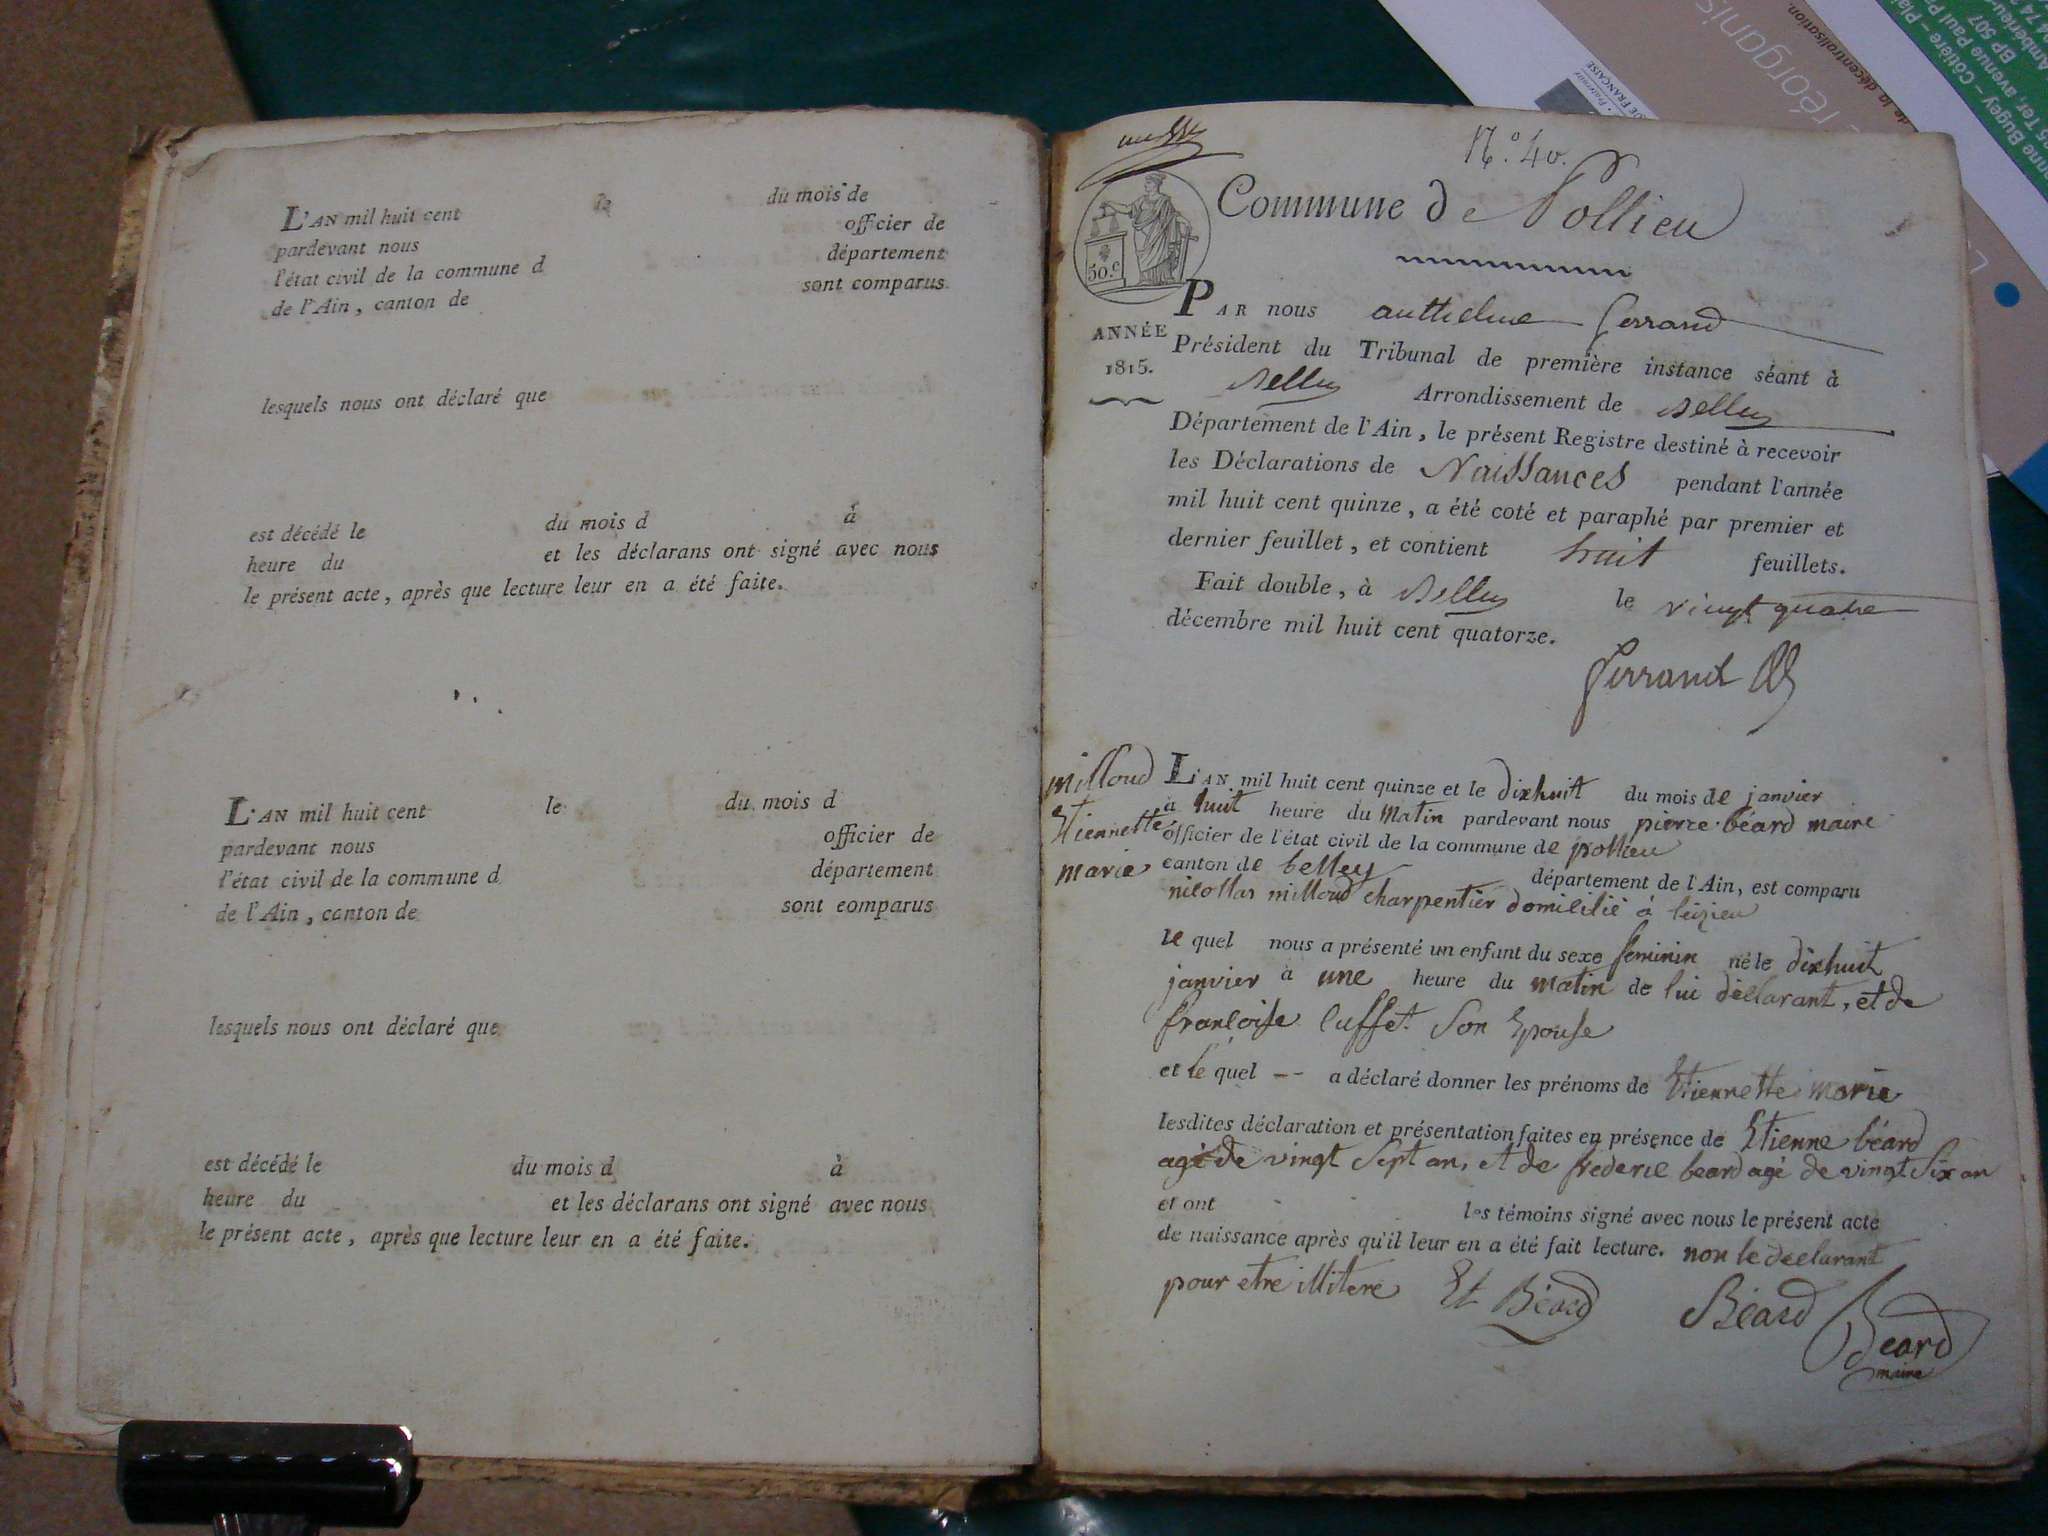 L'AN mil huit cent le du mois de
pardevant nous officier de
l'état civil de la commune d département
de l'Ain, canton de sont comparus
lesquels nous ont déclaré que
est décédé le du mois d à
heure du et les déclarans ont signé avec nous
le présent acte, après que lecture leur en a été faite.
L'AN mil huit cent le du mois d
pardevant nous officier de
l'état civil de la commune d département
de l'Ain, canton de sont comparus
lesquels nous ont déclaré que
est décédé le du mois d à
heure du et les déclarans ont signé avec nous
le présent acte, après que lecture leur en a été faite.
N.° 40.
Commune de Pollieu
50.c
ANNÉE
1815.
PAR nous anthelme ferrand
Président du Tribunal de première instance séant à
Belley Arrondissement de Belley
Département de l'Ain, le présent Registre destiné à recevoir
les Déclarations de Naissances pendant l'année
mil huit cent quinze, a été coté et paraphé par premier et
dernier feuillet, et contient huit feuillets.
Fait double, à Belley le vingt quatre
décembre mil huit cent quatorze.
ferrand
milloud
Etiennette
marie
L'AN mil huit cent quinze et le dixhuit du mois de janvier
à huit heure du matin pardevant nous pierre béard maire
officier de l'état civil de la commune de pollieu
canton de belley département de l'Ain, est comparu
nicollas milloud charpentier domicilié à
le quel nous a présenté un enfant du sexe feminin né le dixhuit
janvier à une heure du matin de lui déclarant, et de
francoise luffet son Epouse
et le quel -- a déclaré donner les prénoms de Etiennette marie
lesdites déclaration et présentation faites en présence de Etienne béard
agé de vingt sept an, et de frederic beard agé de vingt six an
et ont les témoins signé avec nous le présent acte
de naissance après qu'il leur en a été fait lecture. non le declarant
pour etre illitere Et Béard Béard Beard
maire
réorganis
de la décentralisation.